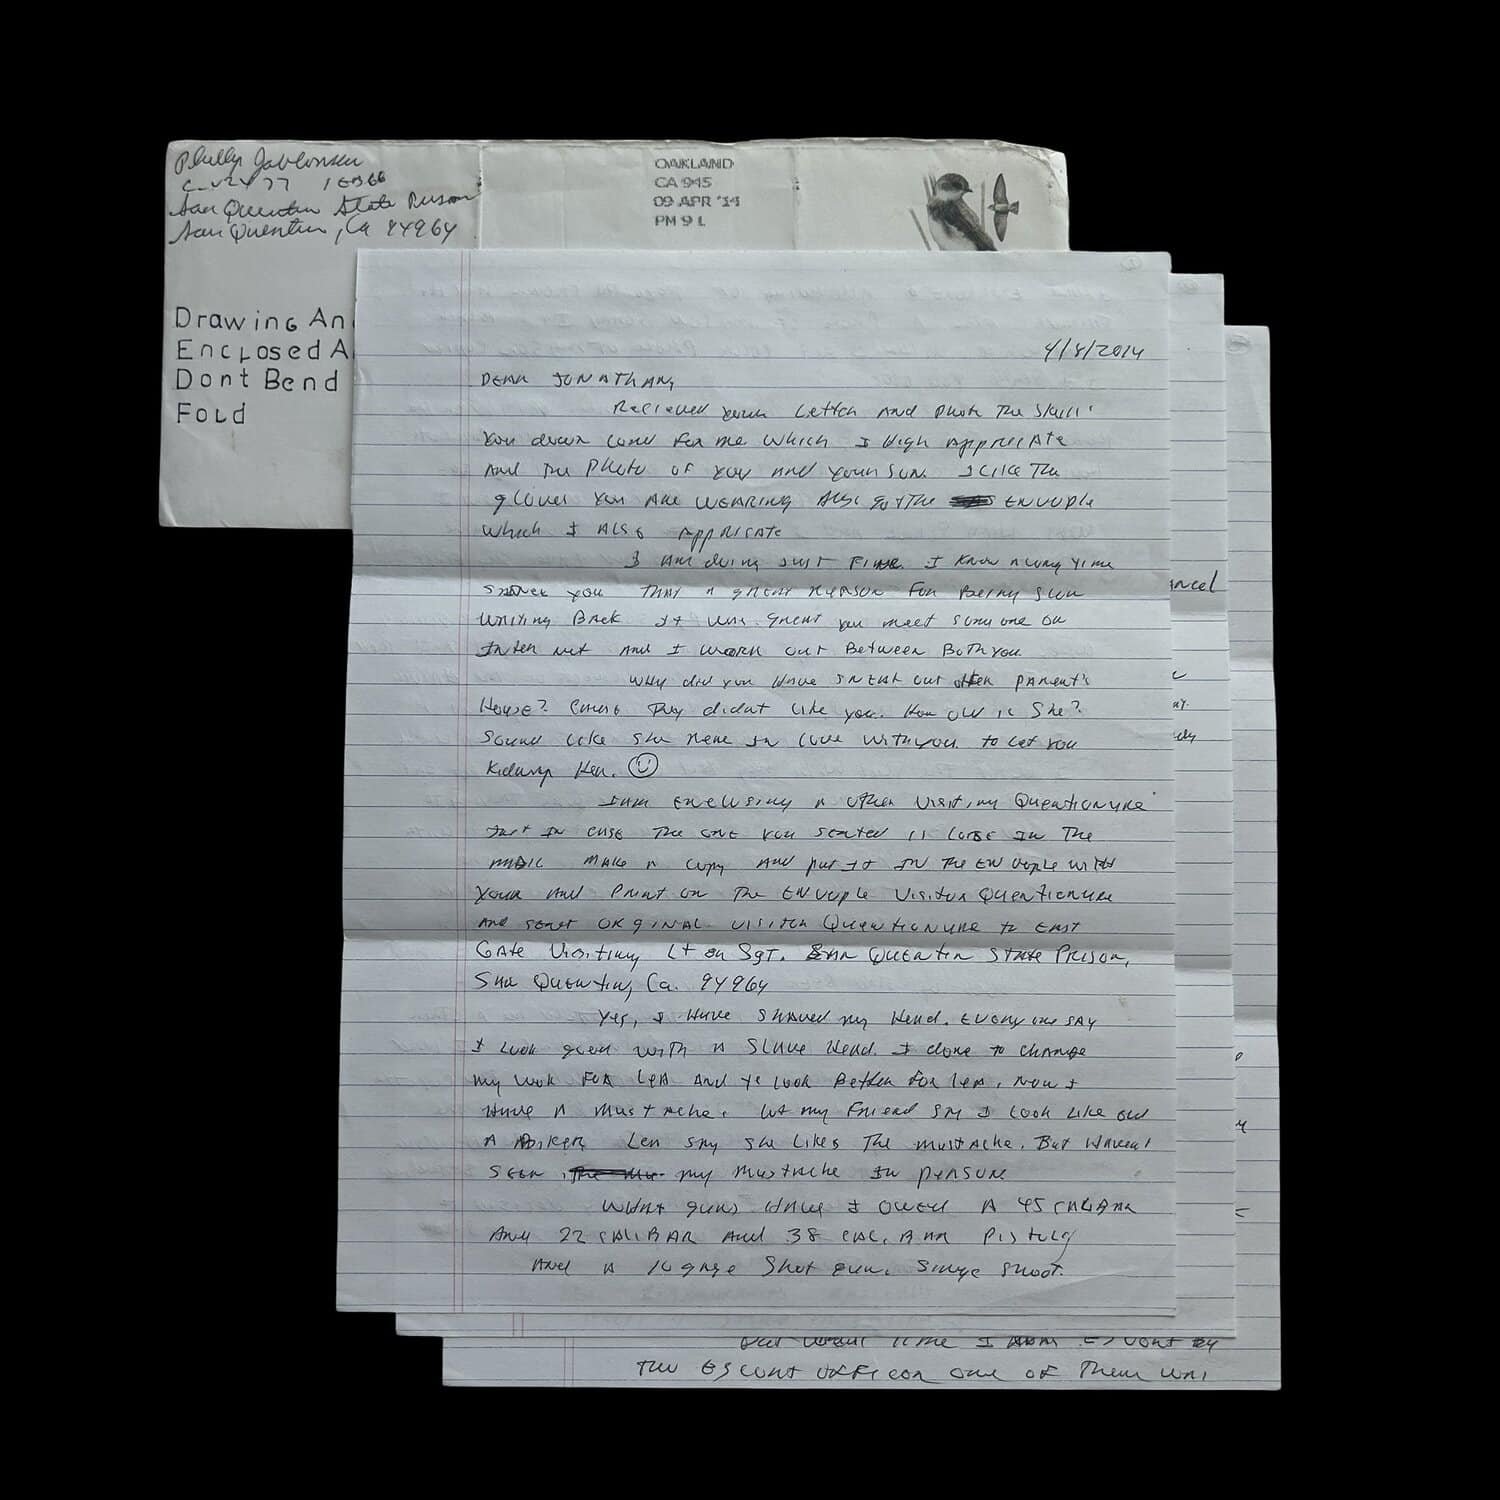 Phillip Jablonski
C-02477 1EB66
San Quentin State Prison
San Quentin, Ca 94964
OAKLAND
CA 945
09 APR '14
PM 9 L
Drawing An
Enclosed A
Dont Bend
Fold
4/8/2014
Dear Jonathan,
Recieved your letter and photo the skull
you drawn for me which I high appriciate
and the photo of you and your son. I like the
gloves you are wearing also got the envople
which I also appricate
I am doing just fine. I know a long time
you that a great reason for being slow
writing back. It was great you meet someone on
internet and I work out between both you
Why did you have sneak out her parent's
House? they didnt like you. How old is she?
Sound like she here in love with you to let you
kidnap her. ☺
I am enclosing a other visiting Questionune
just in case the one you sented is lose in the
make a copy and put it in the envople with
your and print on the envople Visitor Questionune
and sent orginal visitor Questionune to East
Gate Visiting Lt or Sgt. San Quentin State Prison,
San Quentin, Ca. 94964
Yes, I have shaved my head. Everyone say
I look good with a shave head. I done to change
my look for Lea and to look better for Lea, now I
have a mustache. my friend say I look like old
a biker. Lea say she likes the mustache. But haven't
seen my mustache in person
What guns have I owed a 45 calbar
and 22 calibar and 38 pistol
and a 16 gage shot gun. Singe shoot.
ancel
ly
but time I by
the escort officer one of them was